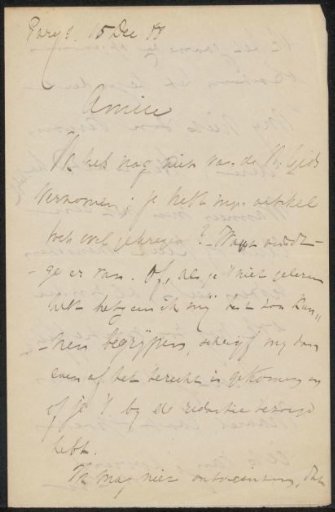 Parijs. 15 Dec 88
Amice
Ik heb nog niets van de N. Gids
vernomen; je hebt mijn artikel
toch wel gekregen? Waar
- ge er van. Of, als je 't niet gelezen
hebt hetgeen ik mij best zou kun„
- nen begrijpen, schrijf mij dan
even of het terecht is gekomen en
of je 't bij de redactie bezorgd
hebt.
Ik mag niet ontveinzen, dat